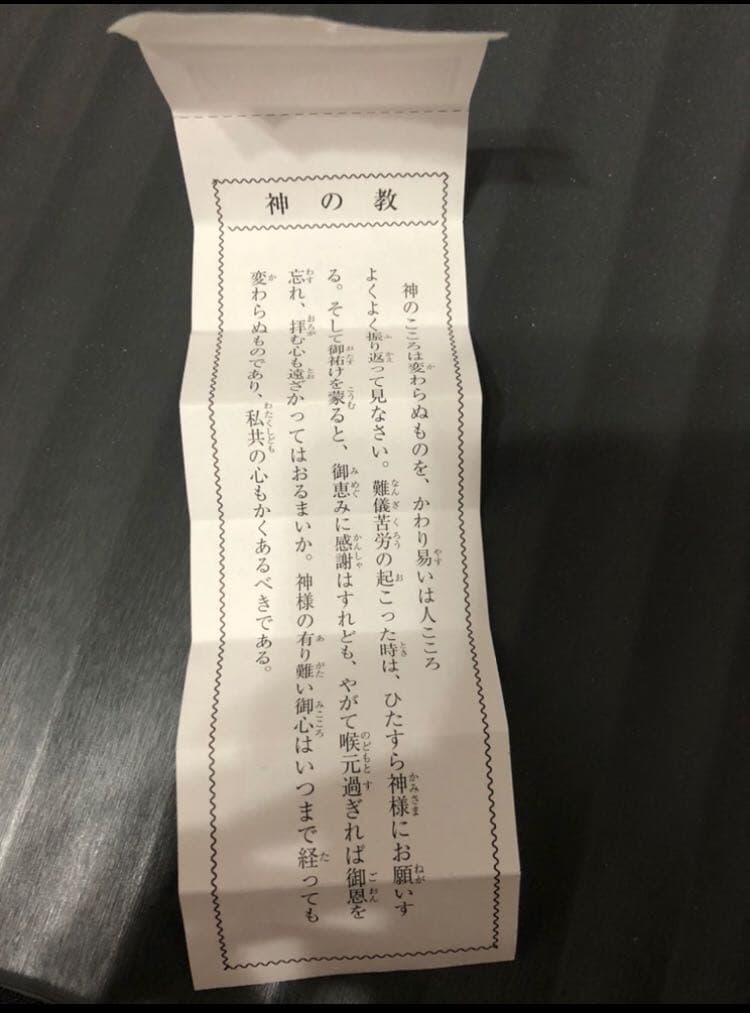 神の教
神のこころは変わらぬものを、かわり易いは人こころ
よくよく振り返って見なさい。難儀苦労の起こった時は、ひたすら神様にお願いす
る。そして御祐けを蒙ると、御恵みに感謝はすれども、やがて喉元過ぎれば御恩を
忘れ、拝む心も遠ざかってはおるまいか。神様の有り難い御心はいつまで経っても
変わらぬものであり、私共の心もかくあるべきである。